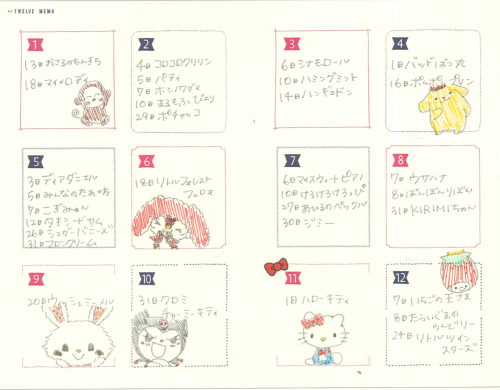 TWELVE MEMO
1
13日おさるのもんきち
18日マイメロディ
2
4日コロコロクリリン
5日パティ
7日ホシノワグマ
10日まるもふびより
29日ポチャッコ
3
6日シナモロール
10日ハミングミント
14日ハンギョドン
4
1日バッドばつ丸
16日ポムポムプリン
5
3日ディアダニエル
5日みんなのたあ坊
7日こぎみゅん
12日タキシードサム
26日シュガーバニーズ
31日マロンクリーム
6
18日リトルフォレスト
フェロォ
7
6日マイスウィートピアノ
10日けろけろけろっぴ
27日あひるのペックル
30日ジミー
8
7日ウサハナ
8日ぼんぼんりぼん
31日KIRIMIちゃん
9
20日ウィッシュミーメル
10
31日クロミ
チャーミーキティ
11
1日ハローキティ
12
7日いちごの王さま
8日たらいぐまの
らんどりー
24日リトルツイン
スターズ